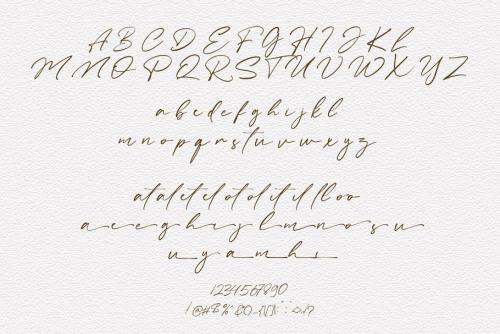 A B C D E F G H I J K L
M N O P Q R S T U V W X Y Z
a b c d e f g h i j k l
m n o p q r s t u v w x y z
at al et el ot ol it il ll oo
a e g h y l m n o s u
u y a m h i
1234567890